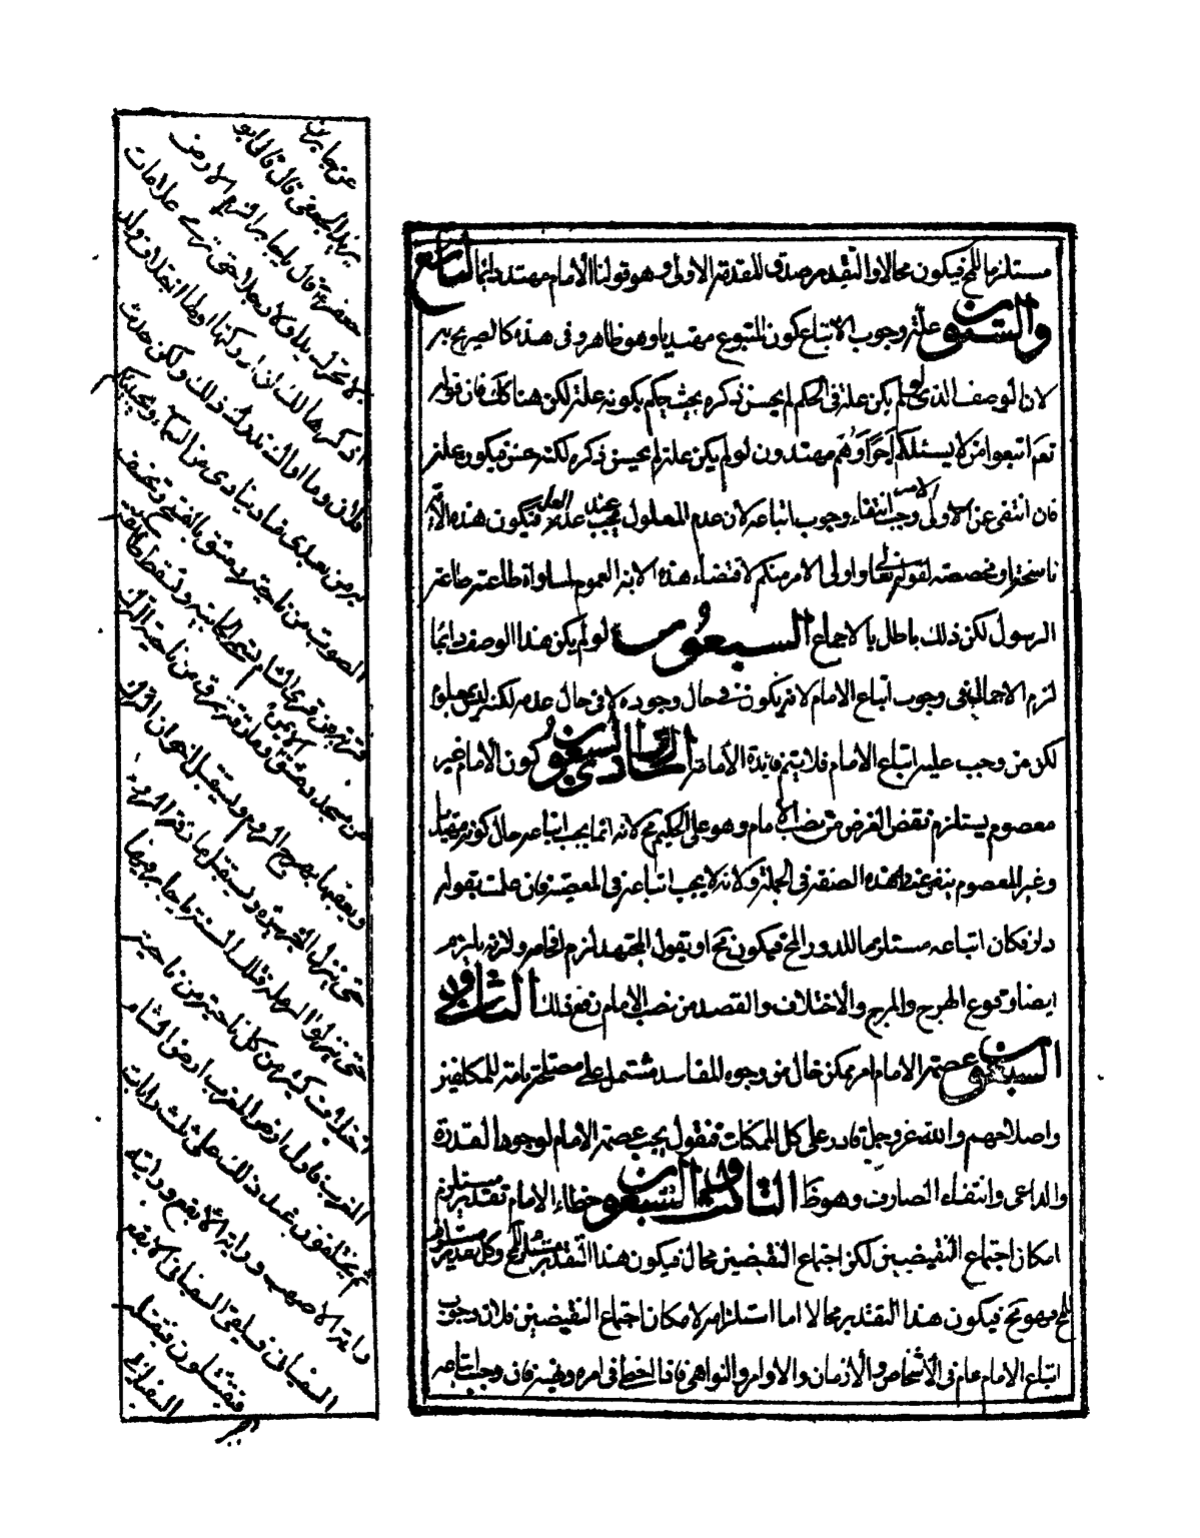 مستلزما للمح فيكون محالا والتقدير صدق المقدمة الاولى وهو قولنا الامام مهتد دائما التاسع
والستون علة وجوب الاتباع كون المتبوع مهتديا وهو ظاهر وفى هذه كالصريح به
لان الوصف الذى لو لم يكن علة فى الحكم لم يحسن ذكره بحيث يحكم بكونه علة لكن هنا كك فان قوله
تعم اتبعوا من لا يسئلكم اجرا وهم مهتدون لو لم يكن علة لم يحسن ذكره لكنه حسن فيكون علة
فان انتفى عن الاولى الامر وجب انتفاء وجوب اتباعه لان عدم المعلول يجب عند عدم العلة فيكون هذه الآية
ناسخة او مخصصة لقوله تعالى واولى الامر منكم لاقتضاء هذه الاية العموم لمساواة طاعته طاعة
الرسول لكن ذلك باطل بالاجماع السبعون لو لم يكن هذا الوصف دائما
لزم الاجمال فى وجوب اتباع الامام لانه يكون فى حال وجوده لا فى حال عدمه لكنه ليس معلوما
لكن من وجب عليه اتباع الامام فلا يتم فايدة الامامة الحادى والسبعون كون الامام غير
معصوم يستلزم نقض الغرض من نصب الامام وهو على الحكيم مح لانه انما يجب اتباعه حال كونه مهتديا
وغير المعصوم ينفى عنه هذه الصفة فى الجملة ولانه لا يجب اتباعه فى المعصية فان علمت بقوله
دار فكان اتباعه مستلزما للدور المح فيكون مح او بقول المجتهد لزم افحامه ولانه يلزم
ايضا وقوع الهرج والمرج والاختلاف والقصد من نصب الامام رفع ذلك الثانى و
السبعون عصمة الامام امر ممكن خال من وجوه المفاسد مشتمل على مصلحة تامة للمكلفين
واصلاحهم والله عز وجل قادر على كل الممكنات فنقول يجب عصمة الامام لوجود القدرة
والداعى وانتفاء الصارف وهو ظ الثالث والسبعون خطاء الامام تقدير مستلزم
امكان اجتماع النقيضين لكن اجتماع النقيضين محال فيكون هذا التقدير مستلزم للمح وكل تقدير مستلزم
للمح فهو مح فيكون هذا التقدير محالا اما استلزامه لامكان اجتماع النقيضين فلان وجوب
اتباع الامام عام فى الاشخاص والازمان والاوامر والنواهى فاذا اخطأ فى امره ونهيه فان وجب اتباعه
عن جابر بن
يزيد الجعفى قال قال ابو
جعفر ع قال يا جابر الزم الارض
لا تحرك يدا ولا رجلا حتى ترى علامات
اذكرها لك ان ادركتها اولها اختلاف ولد
فلان وما اراك تدرك ذلك ولكن حدث
به من بعدى مناد ينادى من السماء ويجيئكم
الصوت من ناحية دمشق بالفتح وتخسف
قرية من قرى الشام تسمى الجابية وتسقط طائفة
من مسجد دمشق الايمن ومارقة تمرق من ناحية الترك
ويعقبها هرج الروم وسيقبل اخوان الترك
حتى ينزلوا الجزيرة وسيقبل مارقة الروم
حتى ينزلوا الرملة فتلك السنة يا جابر فيها
اختلاف كثير من كل ناحية من ناحية
الغرب فاول ارض المغرب ارض الشام
ثم يختلفون عند ذلك على ثلث رايات
راية الاصهب وراية الابقع وراية
السفيانى فيلقى السفيانى الابقع
فيقتتلون فيقتله
السفيانى